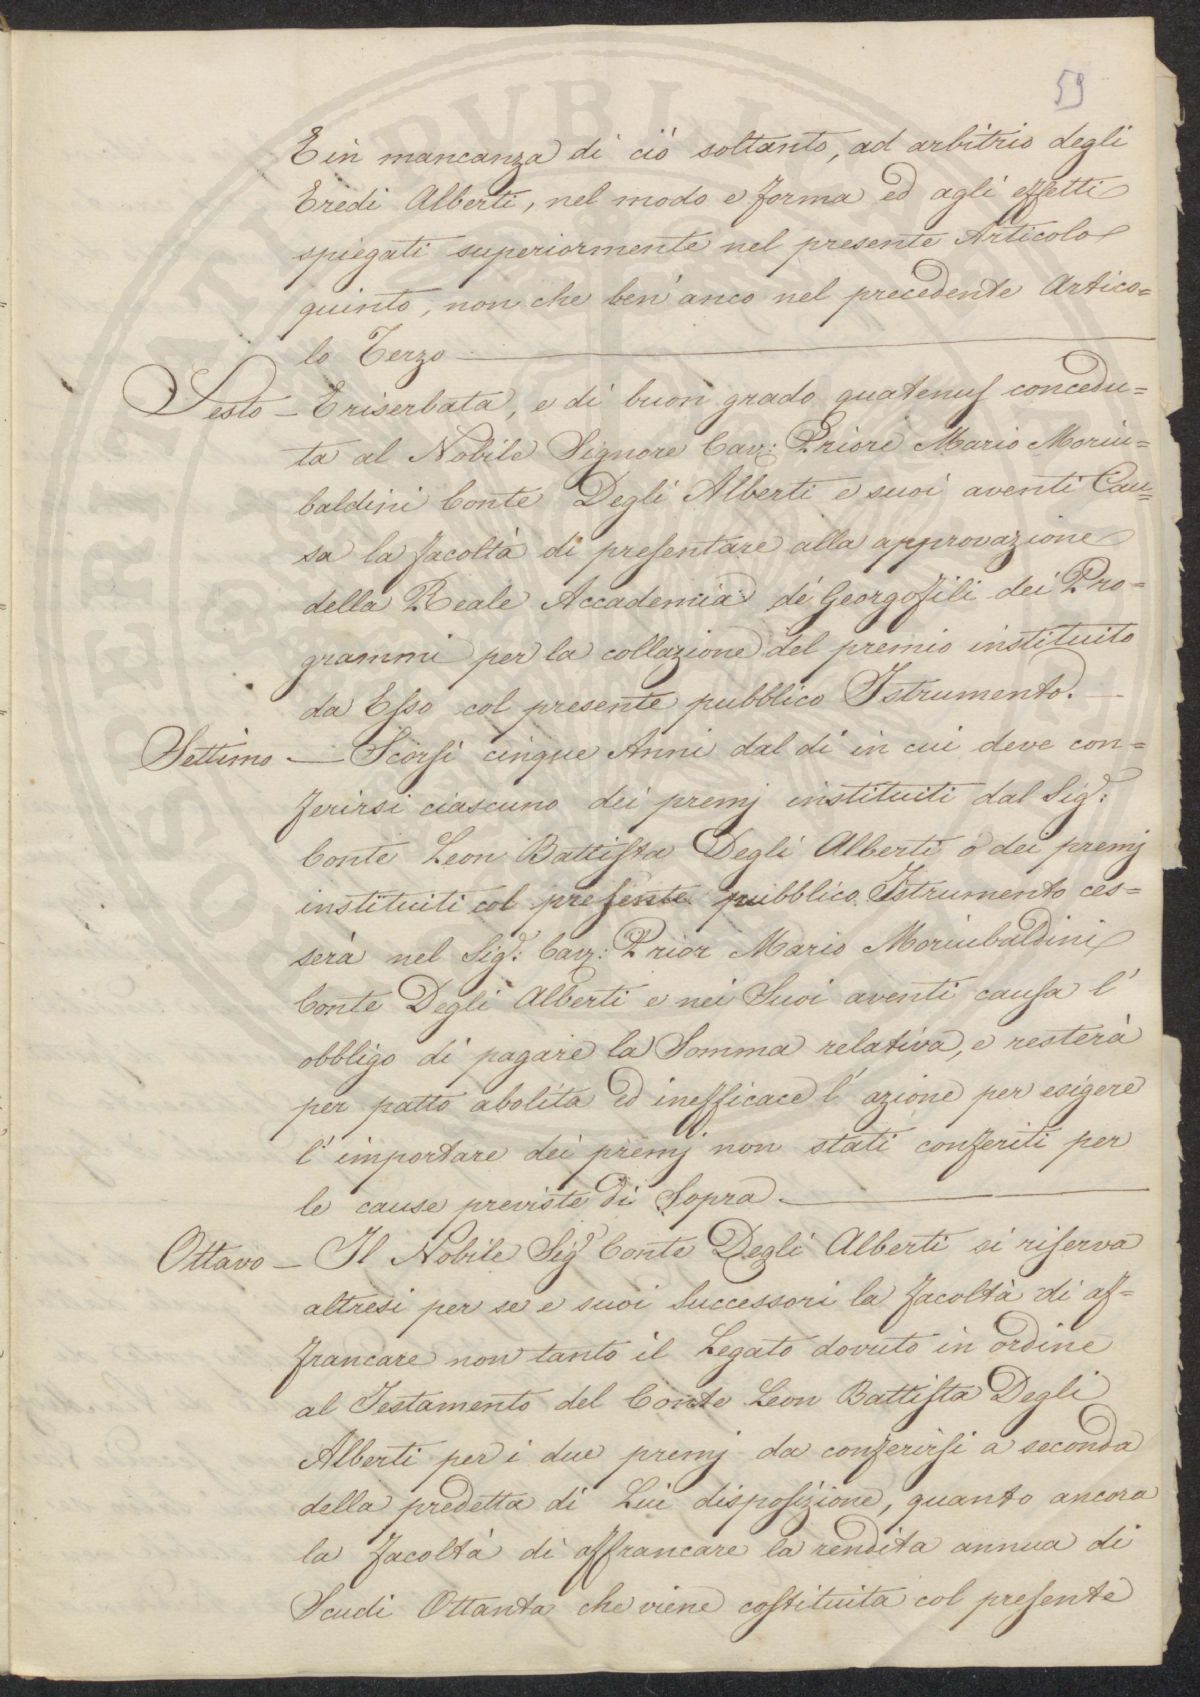 59
E in mancanza di ciò soltanto, ad arbitrio degli
Eredi Alberti, nel modo e forma ed agli effetti
spiegati superiormente nel presente Articolo
quinto, non che ben'anco nel precedente Artico=
lo Terzo
Sesto — È riserbata, e di buon grado quatenus concedu=
ta al Nobile Signore Cav: Priore Mario Moriu=
baldini Conte Degli Alberti e suoi aventi Cau=
sa la facoltà di presentare alla approvazione
della Reale Accademia de' Georgofili dei Pro=
grammi per la collazione del premio instituito
da Esso col presente pubblico Istrumento. —
Settimo — Scorsi cinque Anni dal dì in cui deve con=
ferirsi ciascuno dei premj instituiti dal Sig.r:
Conte Leon Battista Degli Alberti o dei premj
instituiti col presente pubblico Istrumento ces=
serà nel Sig.r: Cav: Prior Mario Moriubaldini
Conte Degli Alberti e nei Suoi aventi causa l'
obbligo di pagare la Somma relativa, e resterà
per patto abolita ed inefficace l'azione per esigere
l'importare dei premj non stati conferiti per
le cause previste di Sopra —
Ottavo — Il Nobile Sig.r Conte Degli Alberti si riserva
altresì per se e suoi Successori la facoltà di af=
francare non tanto il Legato dovuto in ordine
al Testamento del Conte Leon Battista Degli
Alberti per i due premj da conferirsi a seconda
della predetta di Lui disposizione, quanto ancora
la facoltà di affrancare la rendita annua di
Scudi Ottanta che viene costituita col presente